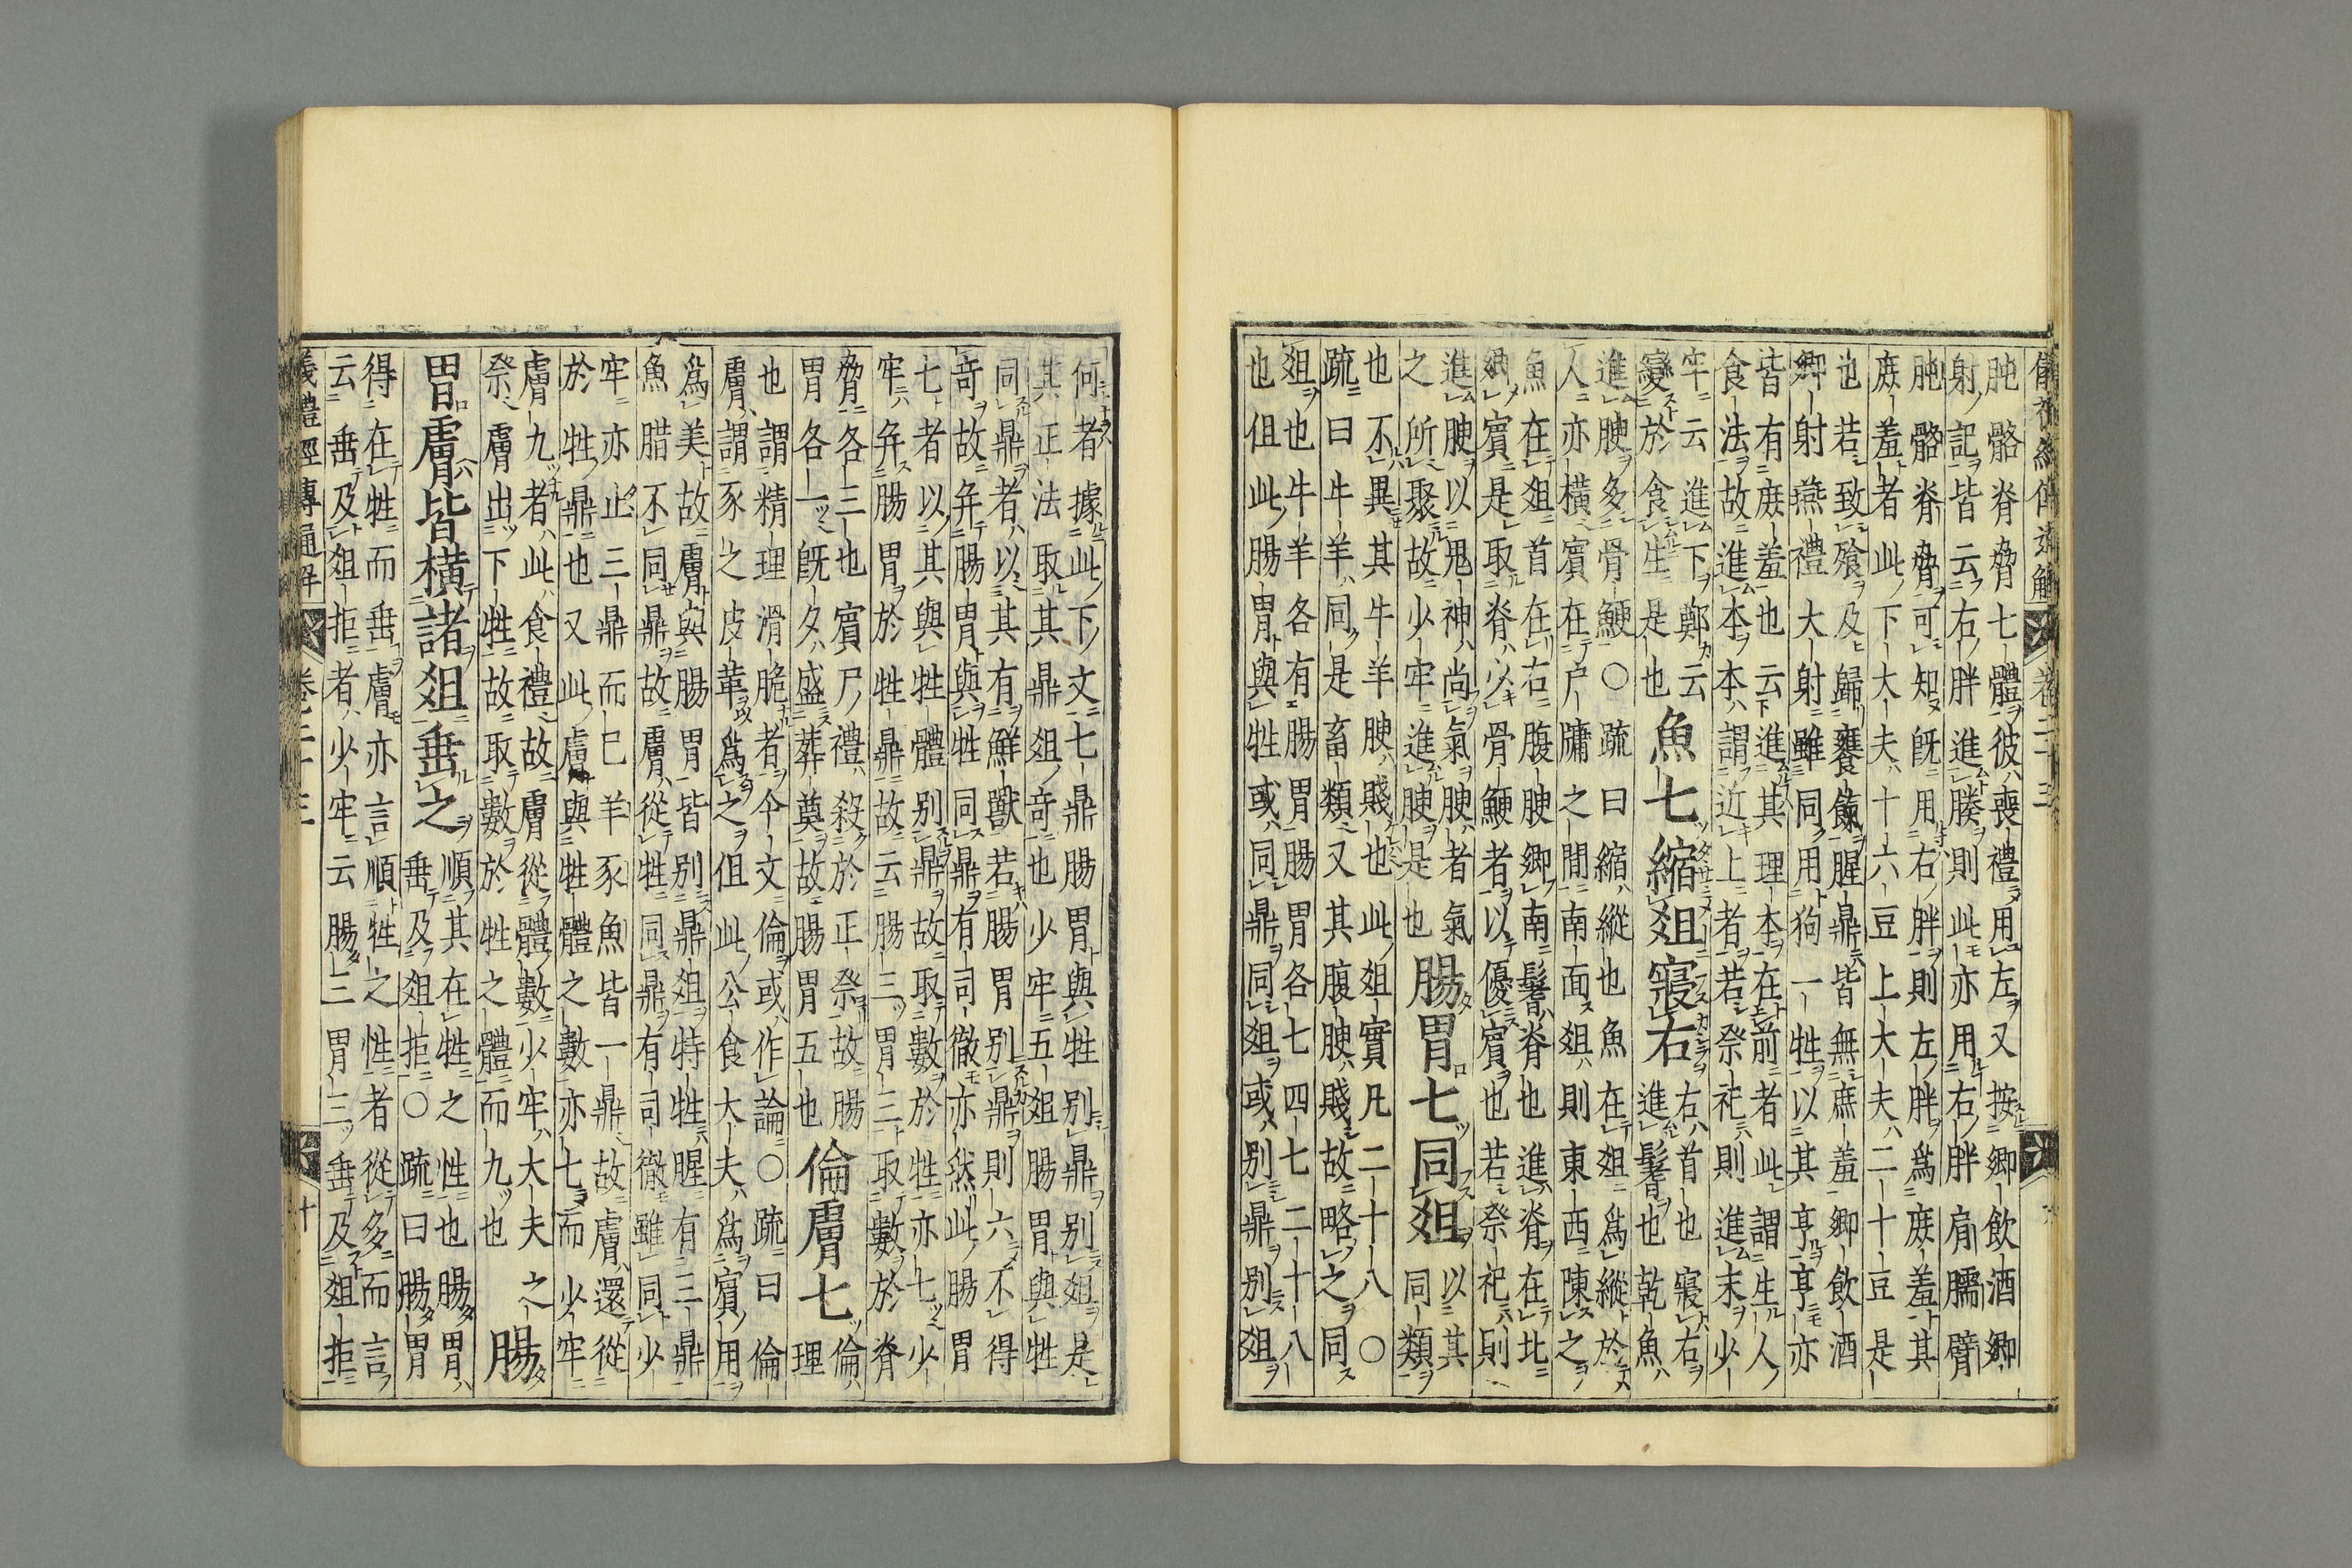 儀禮經傳通解 卷二十三
肫骼脊脅七體彼喪禮用左又按鄉飲酒鄉
射記皆云右胖進腠則此亦用右胖肩臑臂
肫骼脊脅可知既用右胖則左胖爲庶羞其
庶羞者此下大夫十六豆上大夫二十豆是
也若致飱及歸饔餼腥鼎皆無庶羞鄉飲酒
鄉射燕禮大射雖同用狗一牲以其亨亨亦
皆有庶羞也云進其理本在前者此謂生人
食法故進本本謂近上者若祭祀則進末少
牢云進下鄭云
變於食生是也
魚七縮俎寢右
右首也寢右
進鬐也乾魚
進腴多骨鯁○疏曰縮縱也魚在俎爲縱於
人亦橫賓在戶牖之間南面俎則東西陳之
魚在俎首在右腹腴鄉南鬐脊也進脊在北
鄉賓是取脊少骨鯁者以優賓也若祭祀則
進腴以鬼神尚氣腴者氣
之所聚故少牢進腴是也
腸胃七同俎
以其
同類
也不異其牛羊腴賤也此俎實凡二十八○
疏曰牛羊同是畜類又其腹腴賤故略之同
俎也牛羊各有腸胃腸胃各七四七二十八
也但此腸胃與牲或同鼎同俎或別鼎別俎
何者據此下文七鼎腸胃與牲別鼎別俎是
其正法取其鼎俎奇也少牢五俎腸胃與牲
同鼎者以其有鮮獸若腸胃別鼎則六不得
奇故并腸胃與牲同鼎有司徹亦然此腸胃
七者以其與牲體別鼎故取數於牲亦七少
牢并腸胃於牲鼎故云腸三胃三取數於脊
脅各三也賓尸禮殺於正祭故腸
胃各一既夕盛葬奠故腸胃五也
倫膚七
倫
理
也謂精理滑脆者今文倫或作論○疏曰倫
膚謂豕之皮革爲之但此公食大夫爲賓用
爲美故膚與腸胃皆別鼎俎特牲腥有三鼎
魚腊不同鼎故膚從牲同鼎有司徹雖同少
牢亦止三鼎而已羊豕魚皆一鼎故膚還從
於牲鼎也又此膚與牲體之數亦七而少牢
膚九者此食禮故膚從體數少牢大夫之
祭膚出下牲故取數於牲之體而九也
腸
胃膚皆橫諸俎垂之
順其在牲之性也腸胃
垂及俎拒○疏曰腸胃
得在牲而垂膚亦言順牲之性者從多而言
云垂及俎拒者少牢云腸三胃三垂及俎拒
儀禮經傳通解 卷二十三 十